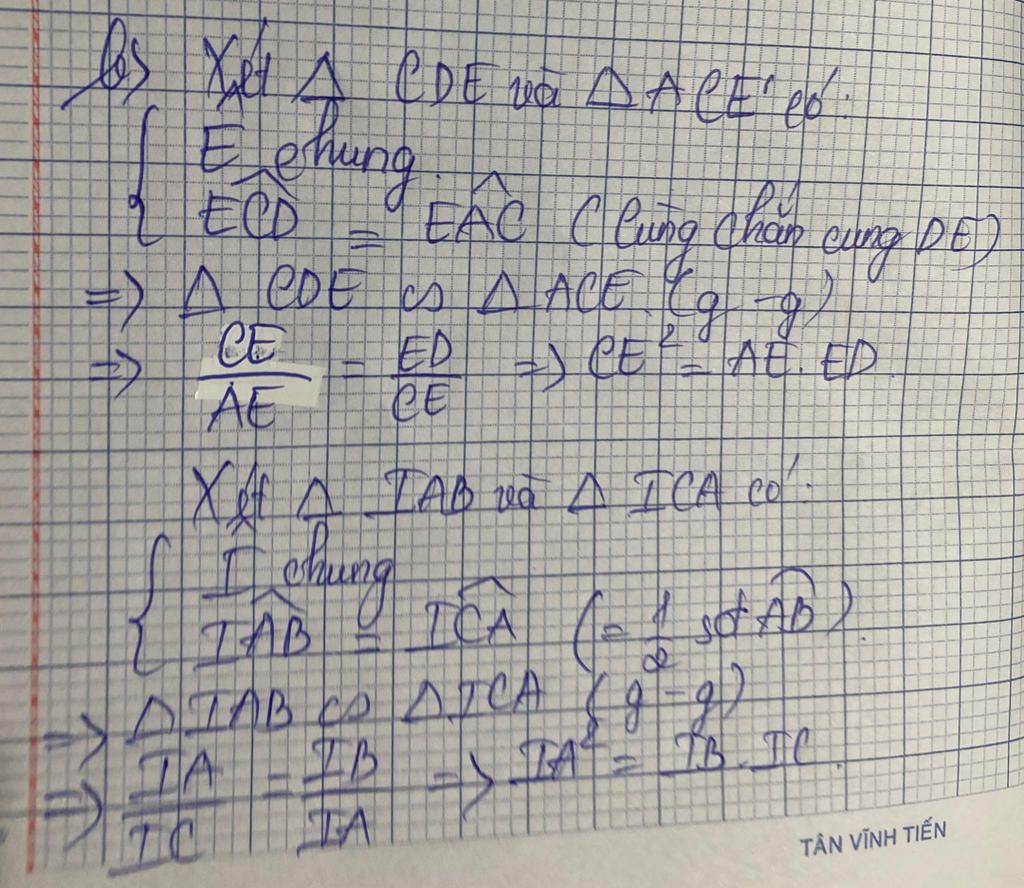 b) Xét Δ CDE và Δ ACE có:
Ê chung.
ECD = EAC (Cùng chắn cung DE)
=> Δ CDE ∽ Δ ACE (g-g)
=> CE/AE = ED/CE => CE² = AE. ED
Xét Δ IAB và Δ ICA có:
I chung
IAB = ICA (= 1/2 sđ AB).
=> Δ IAB ∽ Δ ICA (g-g)
=> IA/IC = IB/IA => IA² = IB. IC.
TÂN VĨNH TIẾN